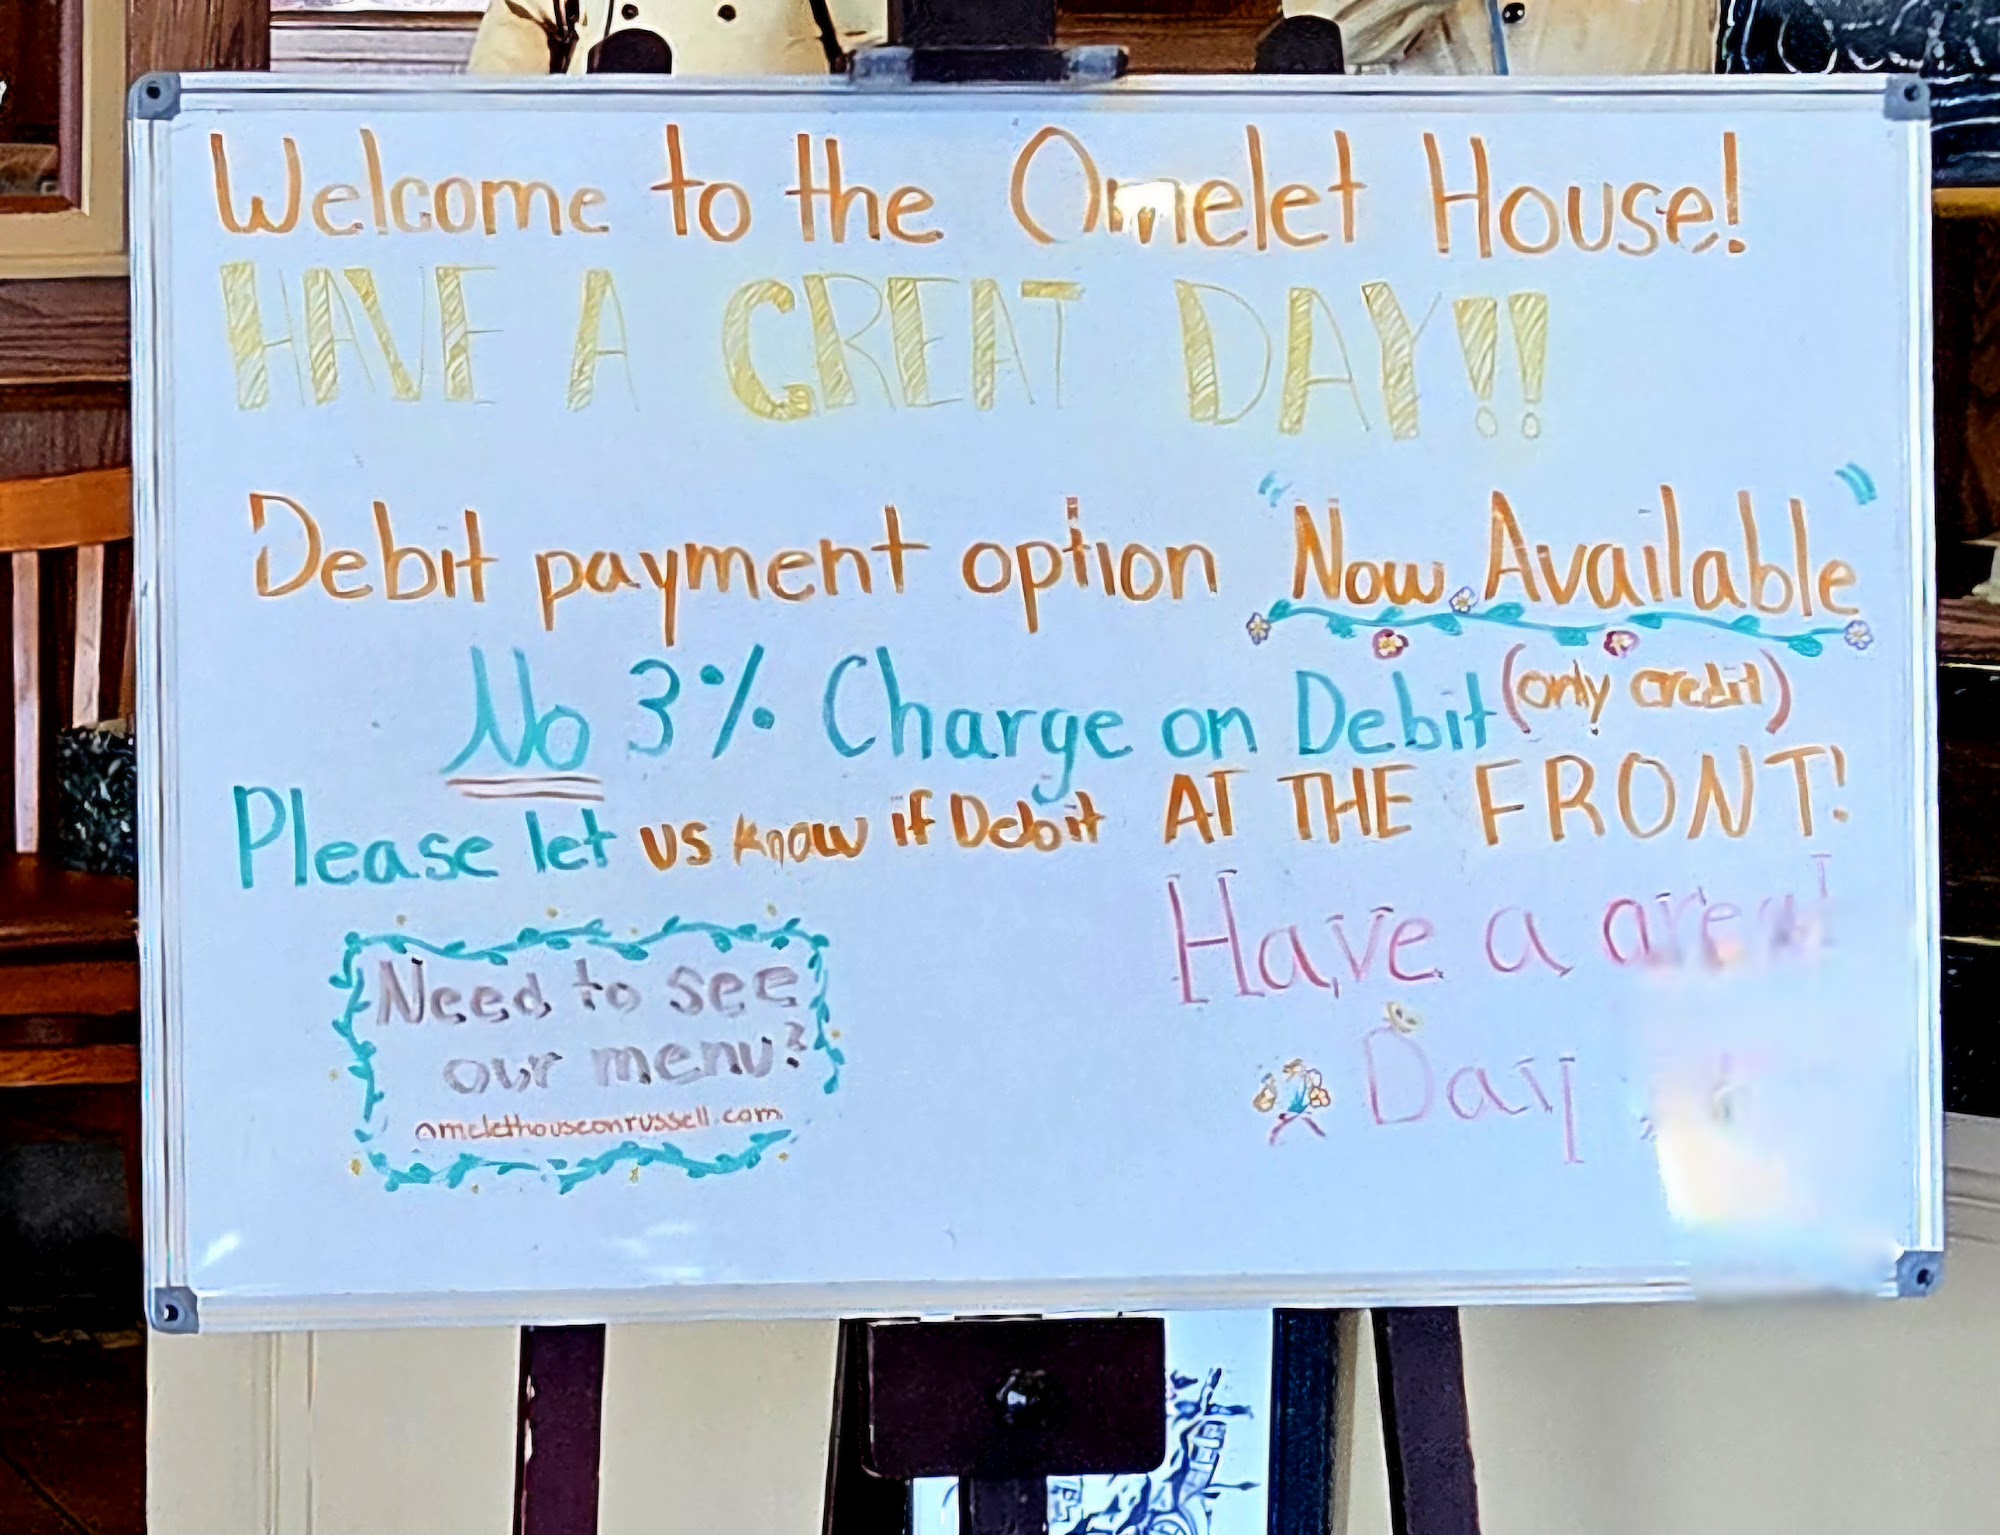 Welcome to the Omelet House!
HAVE A GREAT DAY!!
Debit payment option "Now Available"
No 3% Charge on Debit (only credit)
Please let us know if Debit AT THE FRONT!
Have a
Day
Need to see
our menu?
omelethouseonrussell.com